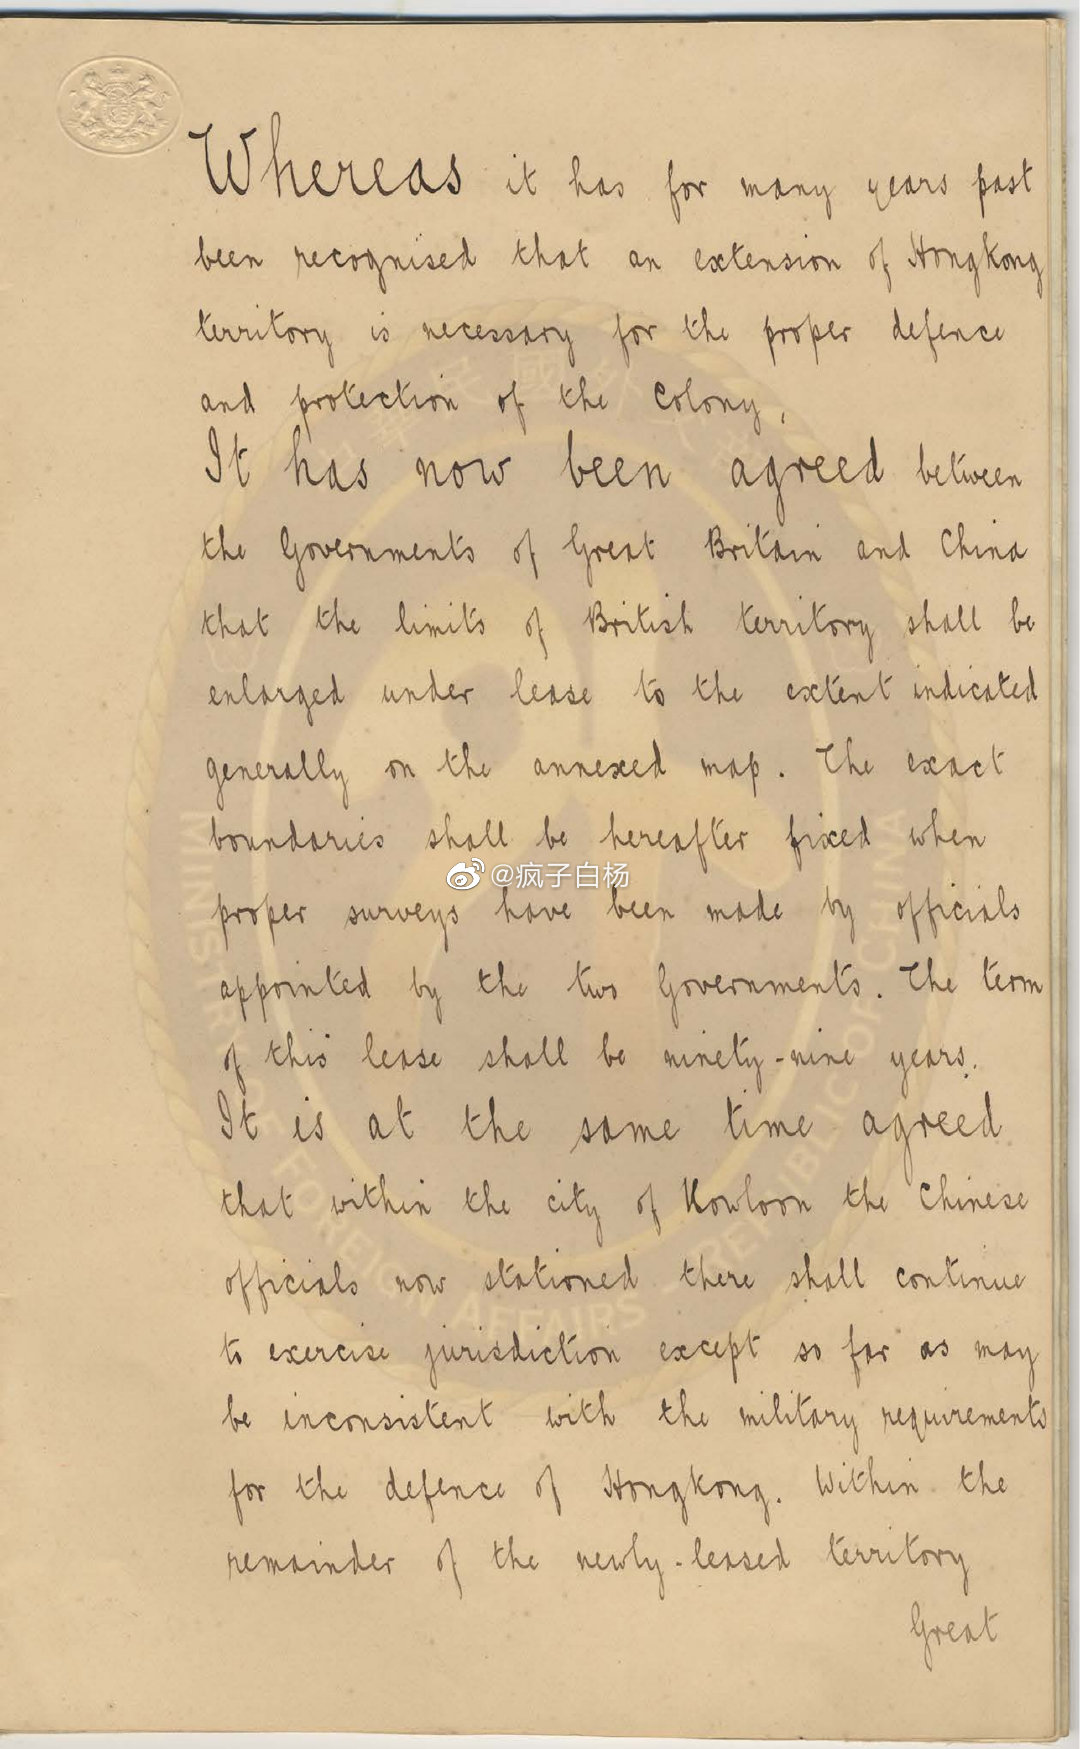 Whereas it has for many years past
been recognised that an extension of Hongkong
territory is necessary for the proper defence
and protection of the Colony,
It has now been agreed between
the Governments of Great Britain and China
that the limits of British territory shall be
enlarged under lease to the extent indicated
generally on the annexed map. The exact
boundaries shall be hereafter fixed when
@疯子白杨
proper surveys have been made by officials
appointed by the two Governments. The term
of this lease shall be ninety-nine years.
It is at the same time agreed
that within the city of Kowloon the Chinese
officials now stationed there shall continue
to exercise jurisdiction except so far as may
be inconsistent with the military requirements
for the defence of Hongkong. Within the
remainder of the newly-leased territory
Great
MINISTRY OF FOREIGN AFFAIRS REPUBLIC OF CHINA